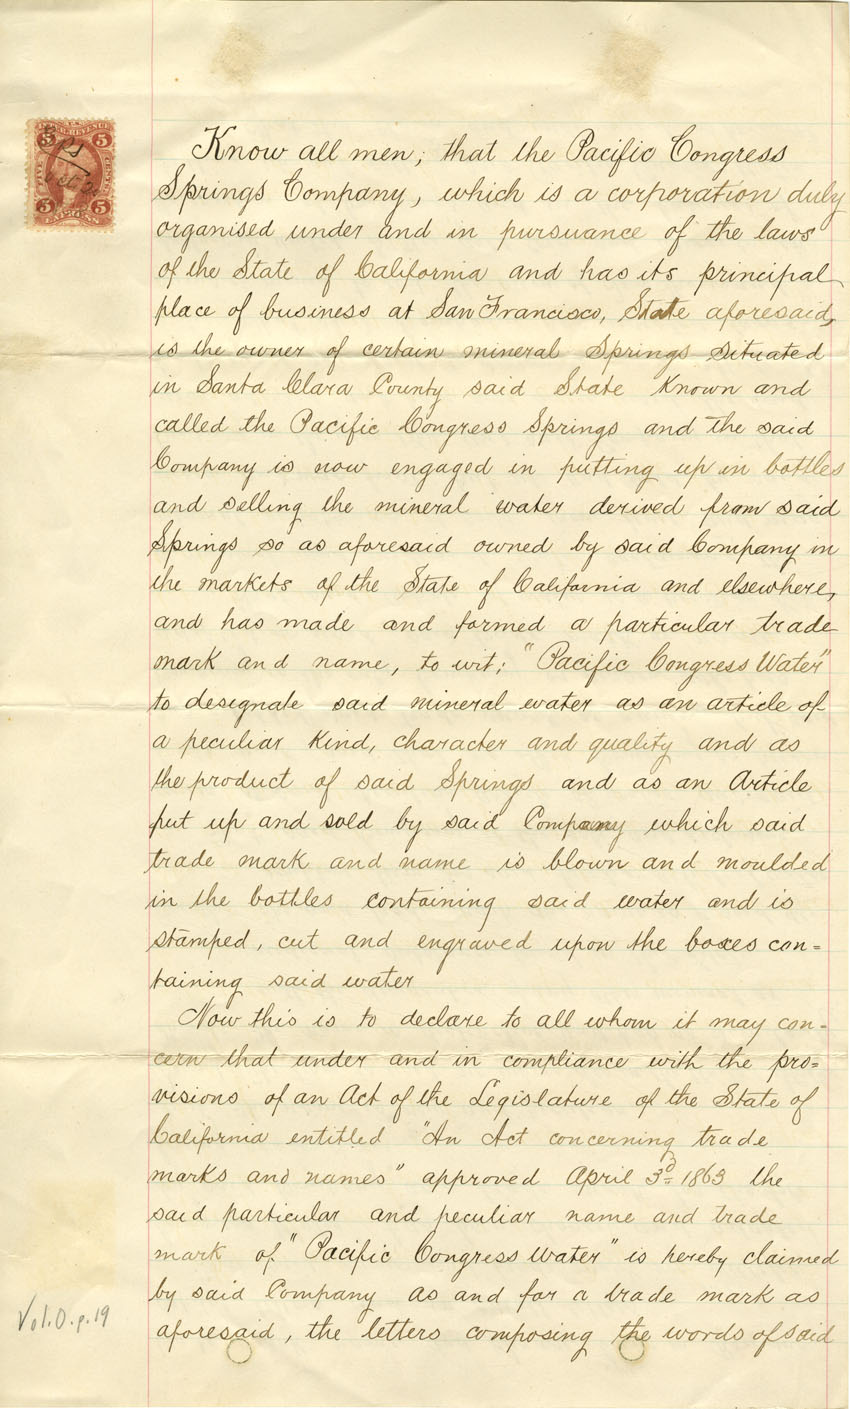 Know all men, that the Pacific Congress
Springs Company, which is a corporation duly
organised under and in pursuance of the laws
of the State of California and has its principal
place of business at San Francisco, State aforesaid,
is the owner of certain mineral Springs situated
in Santa Clara County said State Known and
called the Pacific Congress Springs and the said
Company is now engaged in putting up in bottles
and selling the mineral water derived from said
Springs so as aforesaid owned by said Company in
the markets of the State of California and elsewhere,
and has made and formed a particular trade
mark and name, to wit; "Pacific Congress Water"
to designate said mineral water as an article of
a peculiar Kind, character and quality and as
the product of said Springs and as an Article
put up and sold by said Company which said
trade mark and name is blown and moulded
in the bottles containing said water and is
stamped, cut and engraved upon the boxes con=
taining said water
Now this is to declare to all whom it may con=
cern that under and in compliance with the pro=
visions of an Act of the Legislature of the State of
California entitled "An Act concerning trade
marks and names" approved April 3d 1863 the
said particular and peculiar name and trade
mark of "Pacific Congress Water" is hereby claimed
by said Company as and for a trade mark as
aforesaid, the letters composing the words of said
5 5
INTER. REVENUE
FIVE CENTS
5 5
EXPRESS
Vol. O. p. 19